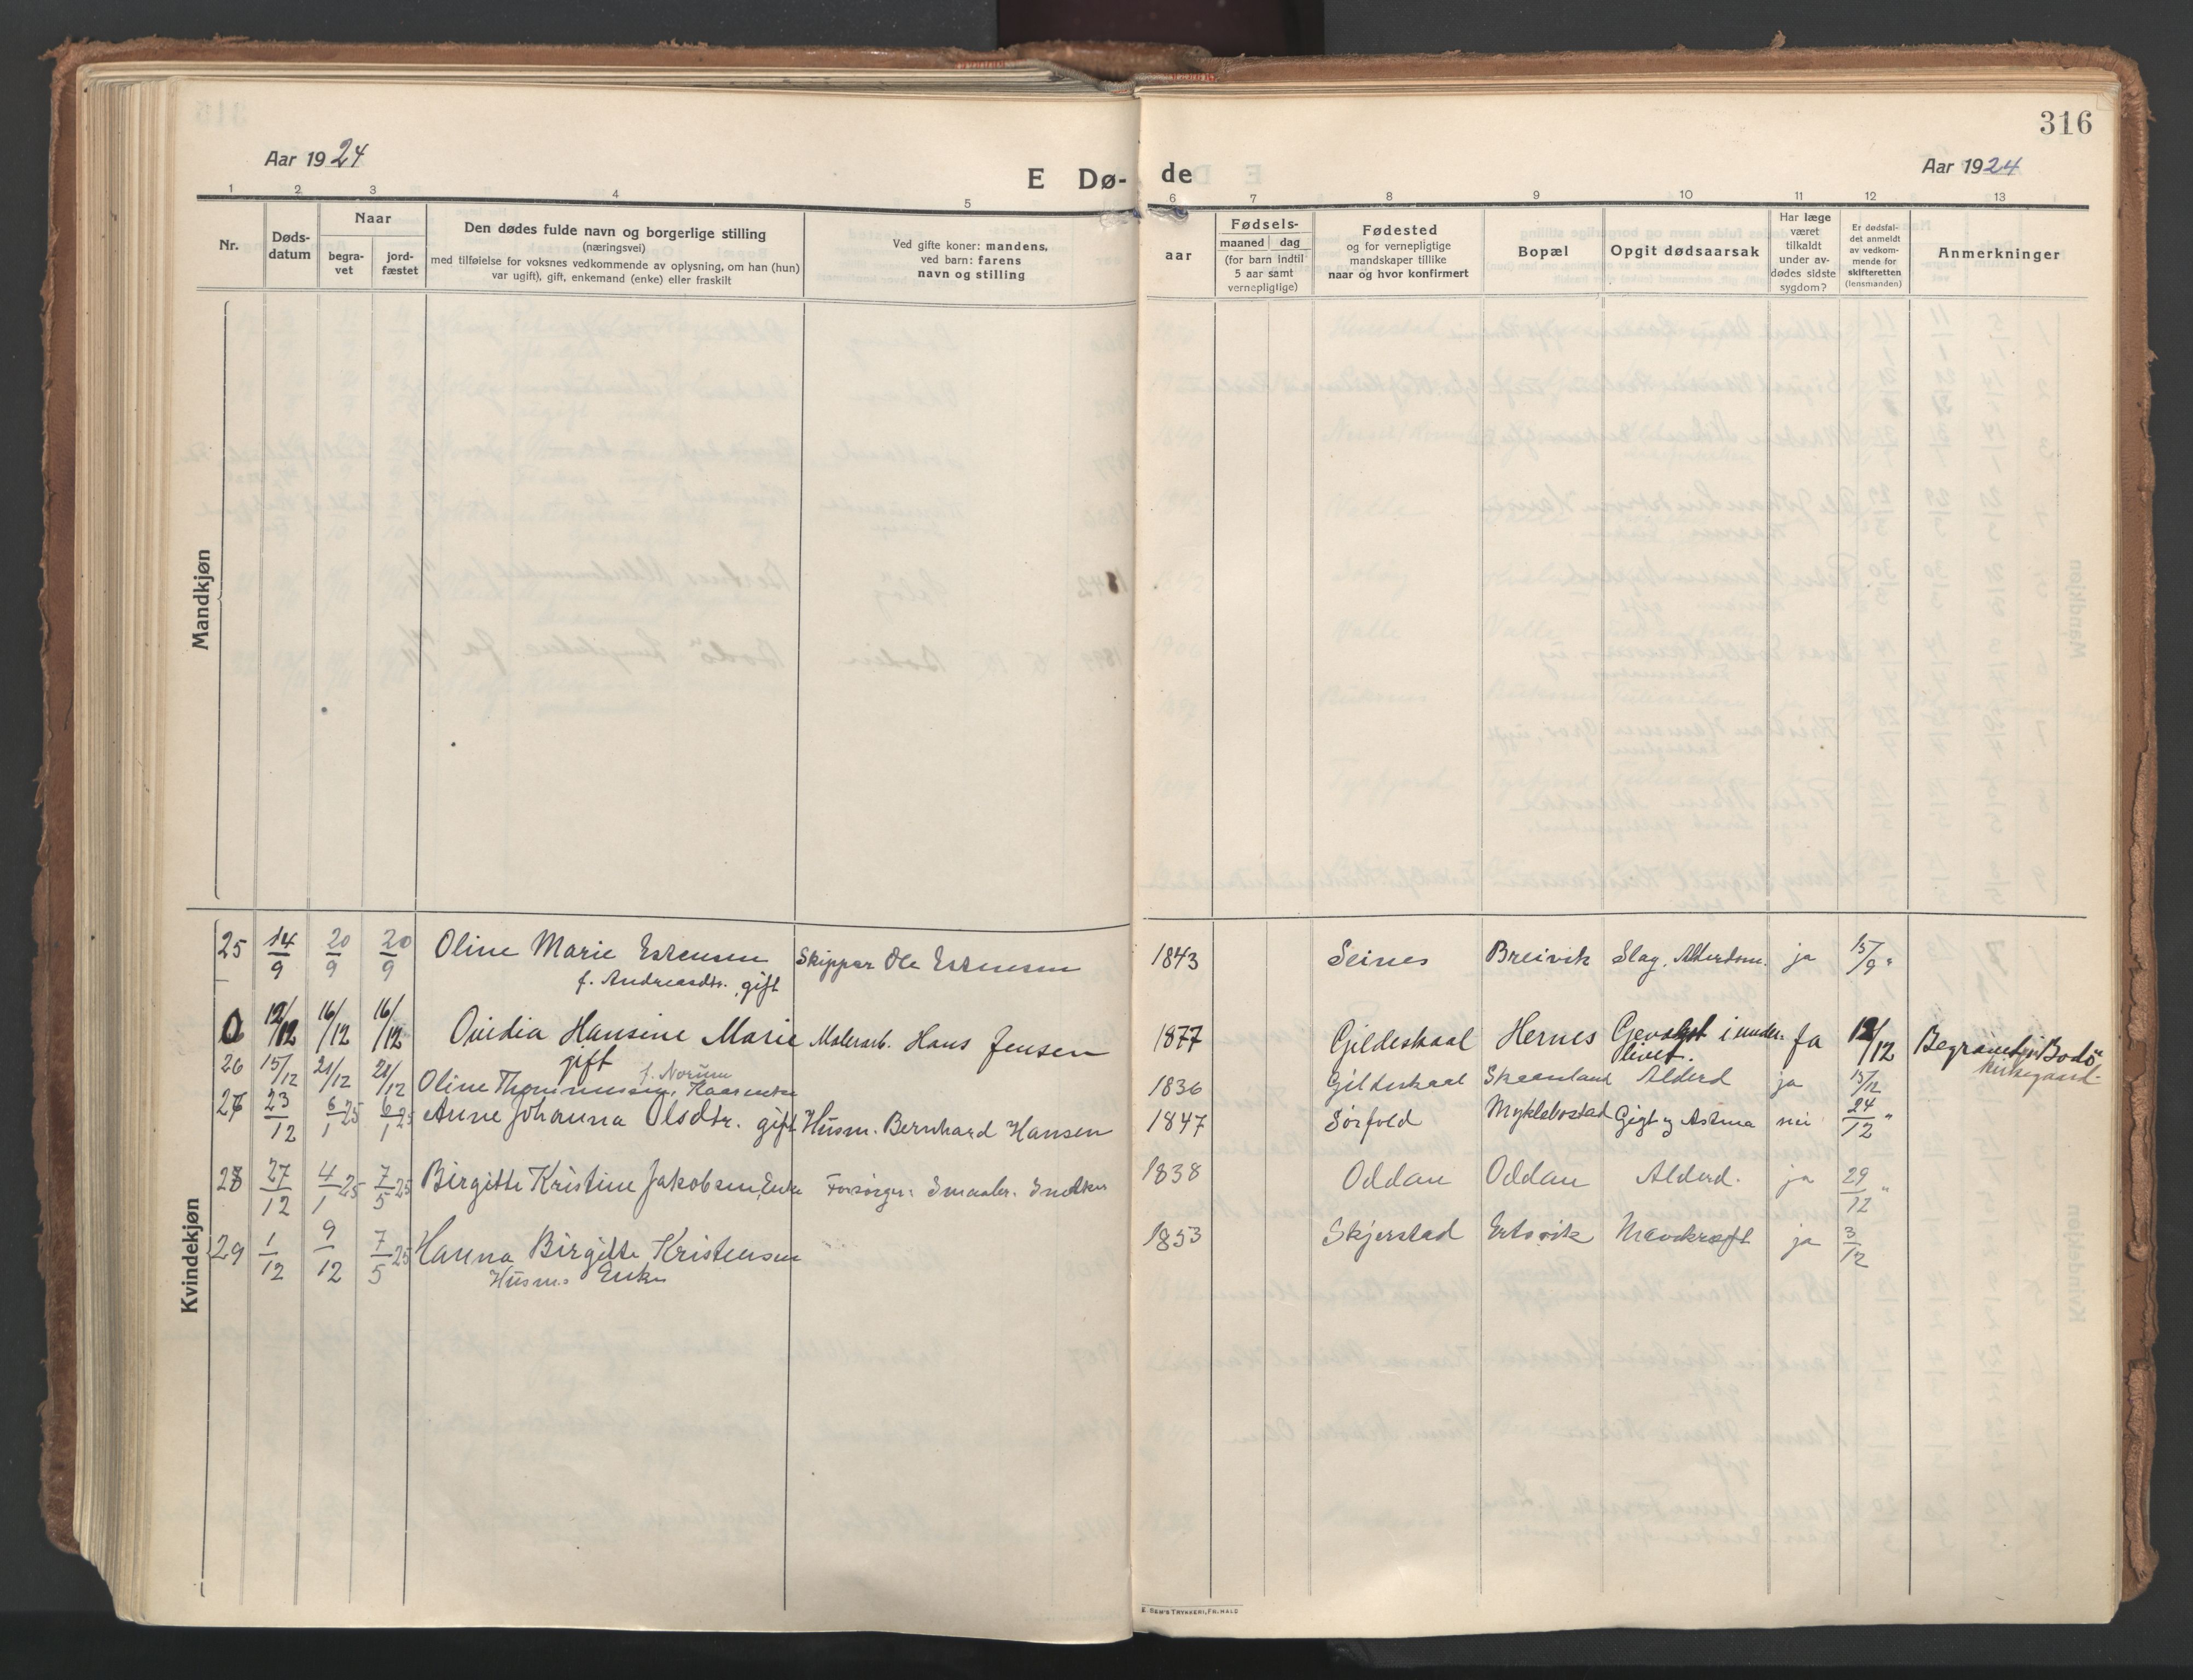 316
Aar 1924
E Dø-
de
Aar 1924
1 2 3 4 5 6 7 8 9 10 11 12 13
Nr.
Døds-
datum
Naar
begra-
vet
jord-
fæstet
Den dødes fulde navn og borgerlige stilling
(næringsvei)
med tilføielse for voksnes vedkommende av oplysning, om han (hun)
var ugift), gift, enkemand (enke) eller fraskilt
Ved gifte koner: mandens,
ved barn: farens
navn og stilling
aar
Fødsels-
maaned dag
(for barn indtil
5 aar samt
vernepligtige)
Fødested
og for vernepligtige
mandskaper tillike
naar og hvor konfirmert
Bopæl
Opgit dødsaarsak
Har læge
været
tilkaldt
under av-
dødes sidste
sygdom?
Er dødsfal-
det anmeldt
av vedkom-
mende for
skifteretten
(lensmanden)
Anmerkninger
Mandkjøn
Kvindekjøn
25 14/9 20/9 20/9 Oline Marie Estensen Skipper Ole Estensen 1843 Seines Breivik Slag, Alderdom. ja 15/9 "
f. Andreasdtr. gift
0 12/12 16/12 16/12 Ovidia Hansine Marie Malerarb. Hans Jensen 1877 Gjildeskaal Hernes i under- ja 12/12 Begravet på Bodø
gift livet. Kirkegaard.
f. Norum
26 15/12 21/12 21/12 Oline Thommesen, 1836 Gildeskaal Skaanland Alderd ja 15/12
27 23/12 6/1 25 6/1 25 Anne Johanna Olsdtr. gift Husm. Bernhard Hansen 1847 Sørfold Myklebostad Gigt og Astma nei 24/12 "
28 27/12 4/1 25 7/5 25 Birgitte Kristine Jakobsen, Enke Forsørger: 1838 Oddan Oddan Alderd. ja 29/12 "
29 1/12 9/12 7/5 25 Hanna Birgitte Kristensen 1853 Skjerstad Ertsvik Mavekræft ja 3/12
Husm. Enke
E SEM'S TRYKKERI, FR.HALD